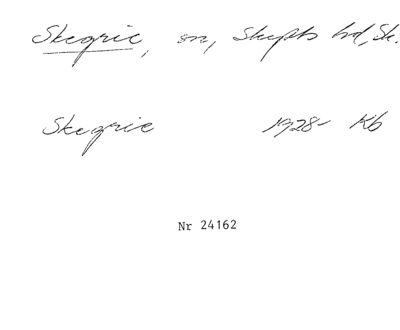 Skegrie, sn, Skytts hd, Sk.
Skegrie 1928- Kb
Nr 24162